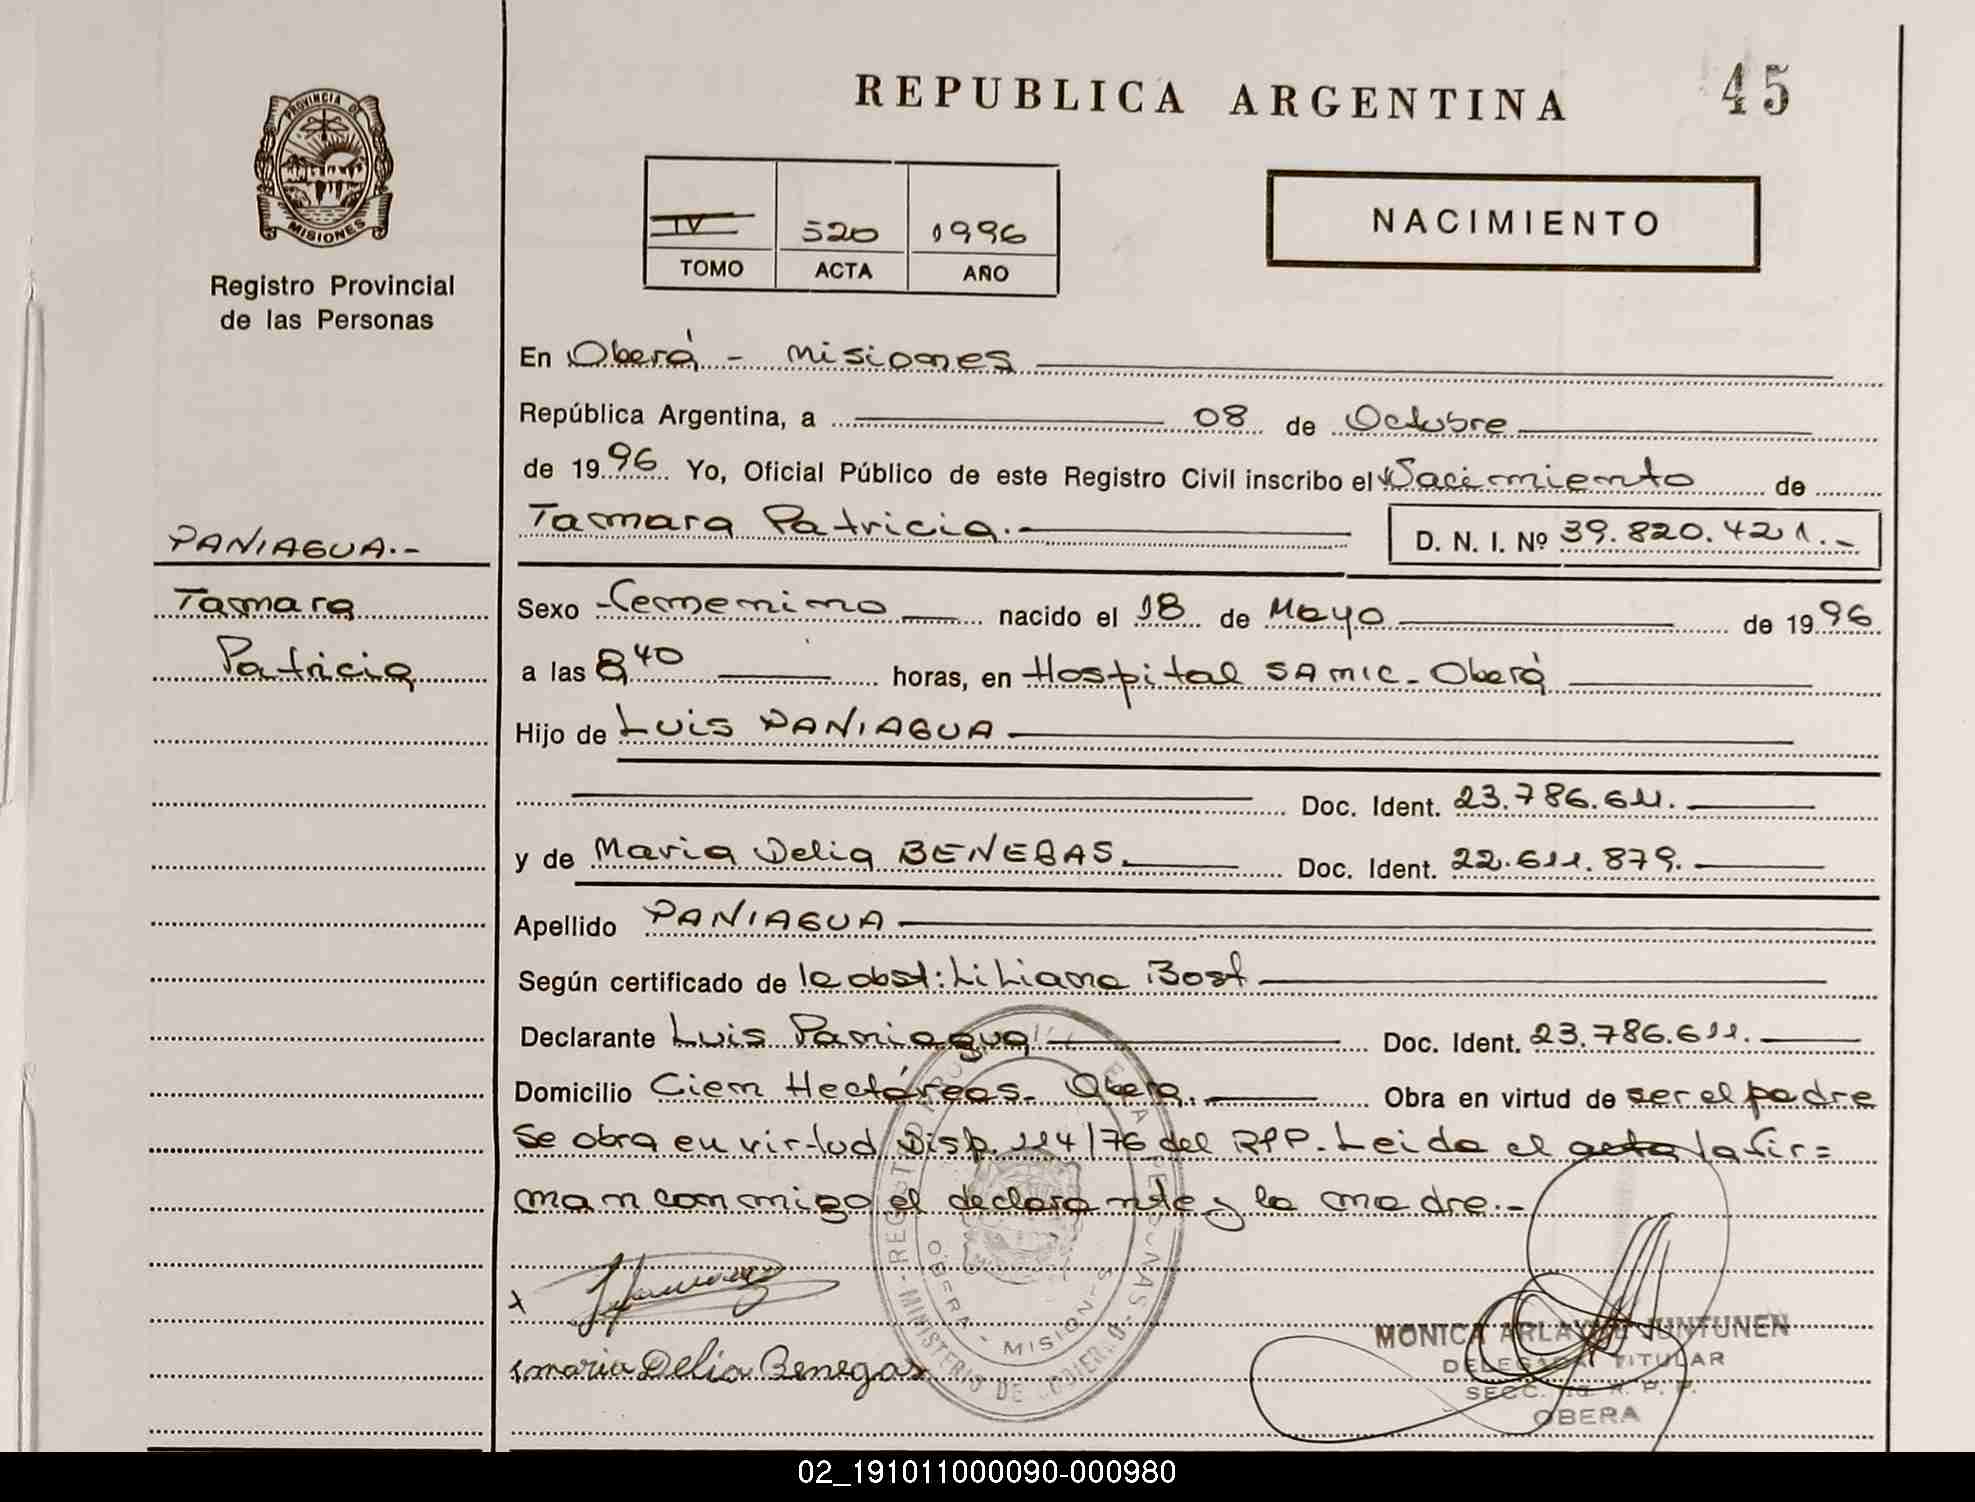 REPUBLICA ARGENTINA
45
PROVINCIA DE
MISIONES
Registro Provincial
de las Personas
IV 520 1996
TOMO ACTA AÑO
NACIMIENTO
En Oberá - Misiones
República Argentina, a 08 de Octubre
de 1996 Yo, Oficial Público de este Registro Civil inscribo el Nacimiento de
Tamara Patricia.
D. N. I. Nº 39.820.421.-
PANIAGUA.-
Tamara
Patricia
Sexo Femenino nacido el 18 de Mayo de 1996
a las 8,40 horas, en Hospital SAMIC - Oberá
Hijo de Luis PANIAGUA
Doc. Ident. 23.786.611.
y de Maria Delia BENEGAS. Doc. Ident. 22.611.879.
Apellido PANIAGUA
Según certificado de la obst: Liliana Bost
Declarante Luis Paniagua Doc. Ident. 23.786.611.
Domicilio Cien Hectáreas - Oberá. Obra en virtud de ser el padre
Se obra en virtud Disp. 114/76 del RPP. Leida el acta la fir=
man conmigo el declarante y la madre.-
x
Maria Delia Benegas
MINISTERIO DE GOBIERNO
OBERA - MISIONES
MONICA JUNTUNEN
DELEGADA TITULAR
SECC. R. P. P.
OBERA
02_191011000090-000980